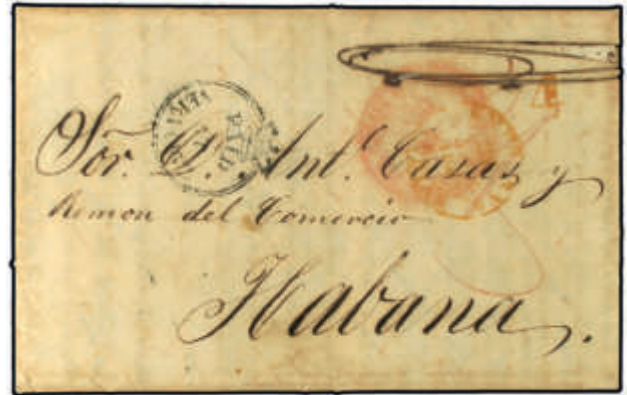 4
PAID
Sor. D. Ant. Casas y
Remon del Comercio
Habana.